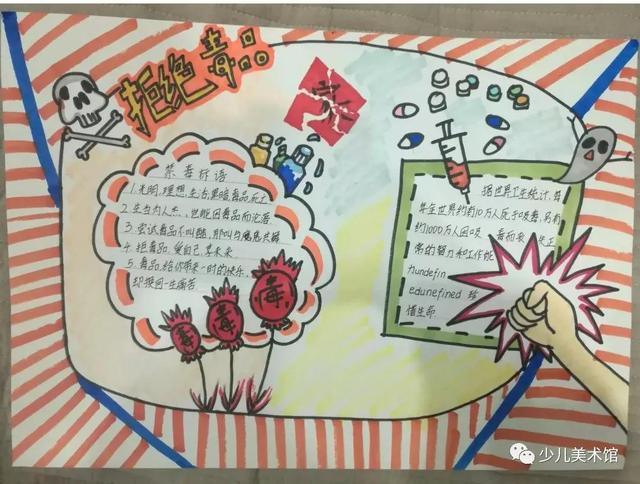 拒绝毒品
禁
禁毒标语
1. 光明,理想,生活;黑暗,毒品,死亡
2. 生当为人杰,岂能因毒品而沦落
3. 尝试毒品不叫酷,那叫白痴
4. 拒毒品,爱自己,享未来
5. 毒品,给你带来一时的快乐,
却换回一生痛苦
毒
毒
毒
据世界卫生统计,每
年全世界约有10万人死于吸毒,另有
约1000万人因吸 毒而丧失正
常的智力和工作能
力undefin
edunefined 珍
惜生命
少儿美术馆